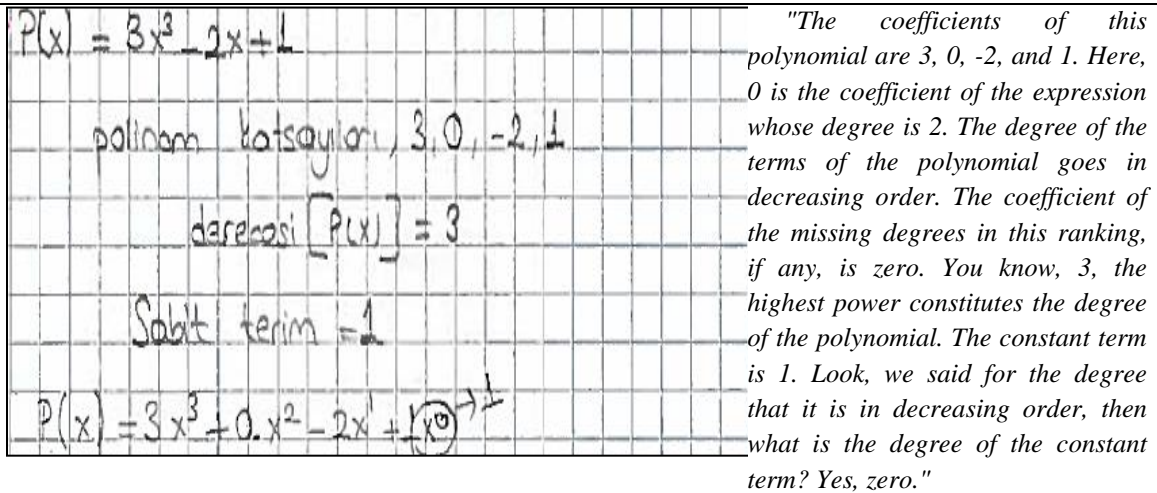 P(x) = 3x³ - 2x + 1
polinom katsayıları, 3, 0, -2, 1
derecesi [P(x)] = 3
Sabit terim = 1
P(x) = 3x³ + 0.x² - 2x¹ + 1x⁰ → 1
"The coefficients of this
polynomial are 3, 0, -2, and 1. Here,
0 is the coefficient of the expression
whose degree is 2. The degree of the
terms of the polynomial goes in
decreasing order. The coefficient of
the missing degrees in this ranking,
if any, is zero. You know, 3, the
highest power constitutes the degree
of the polynomial. The constant term
is 1. Look, we said for the degree
that it is in decreasing order, then
what is the degree of the constant
term? Yes, zero."